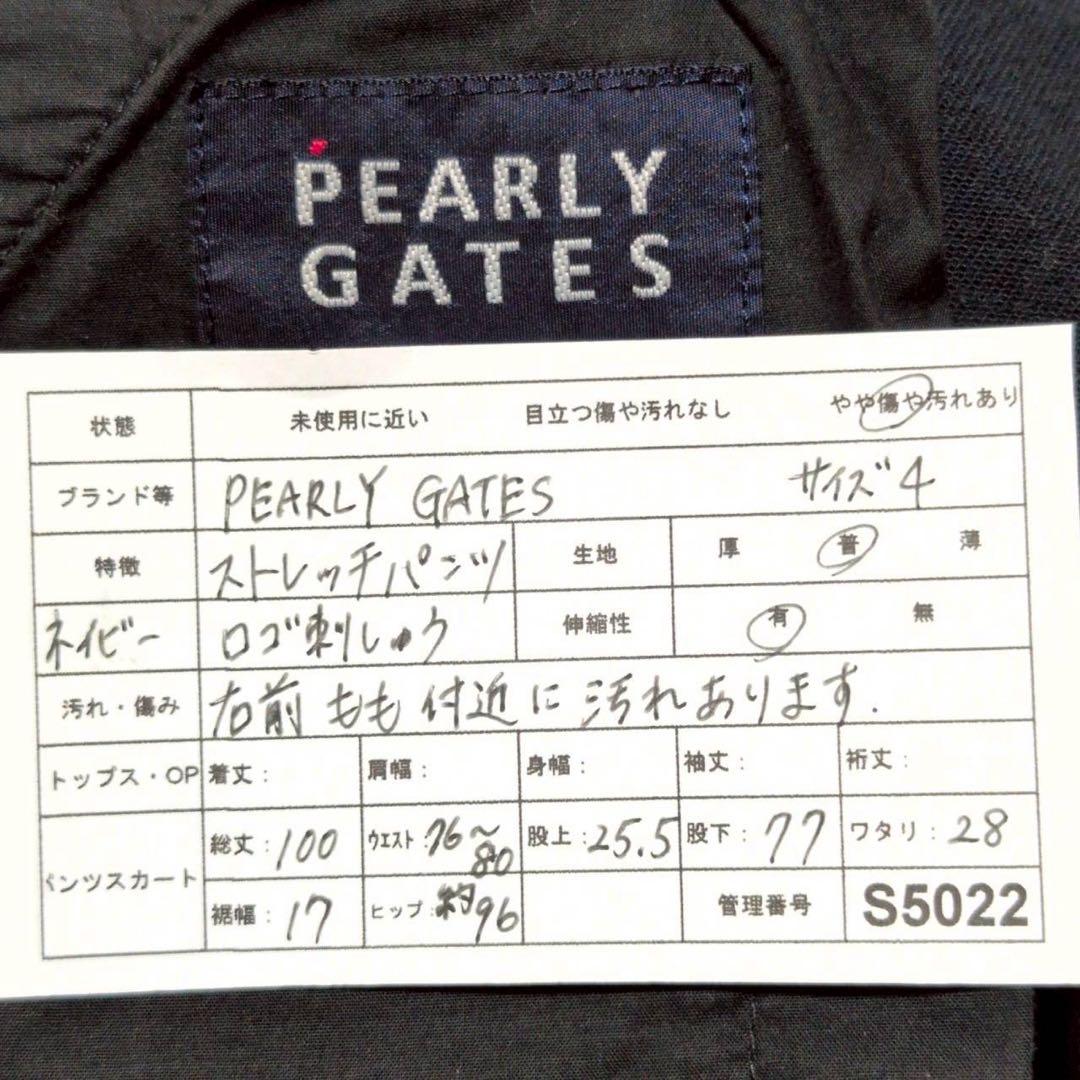 PEARLY
GATES
状態 未使用に近い 目立つ傷や汚れなし やや傷や汚れあり
ブランド等 PEARLY GATES サイズ4
特徴 ストレッチパンツ 生地 厚 普 薄
ネイビー ロゴ刺しゅう 伸縮性 有 無
汚れ・傷み 右前もも付近に汚れあります.
トップス・OP 着丈: 肩幅: 身幅: 袖丈: 裄丈:
パンツスカート 総丈:100 ウエスト:76~80 股上:25.5 股下:77 ワタリ:28
裾幅:17 ヒップ:約96 管理番号 S5022